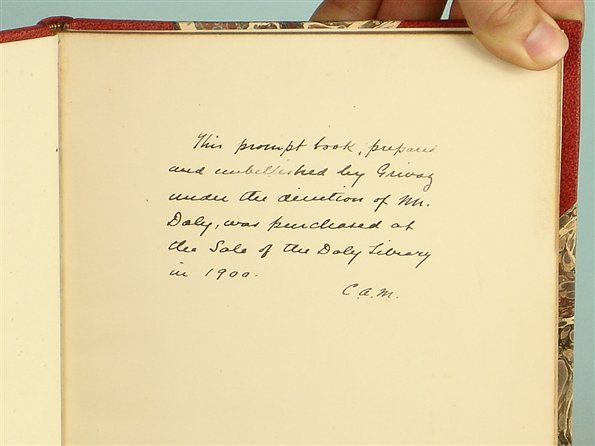 This prompt book, prepared
and embellished by Grivaz
under the direction of Mr.
Daly, was purchased at
the Sale of the Daly Library
in 1900.
C.A.M.